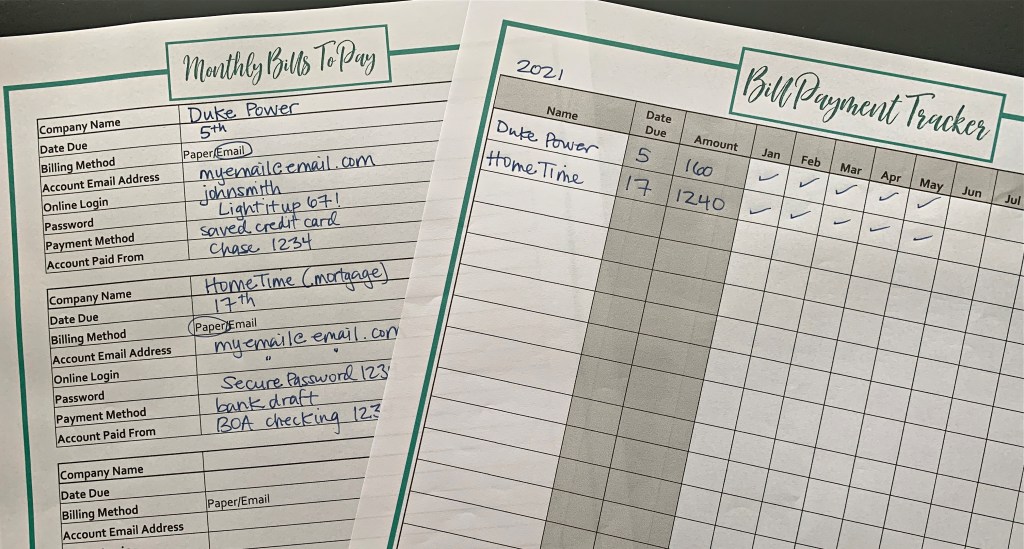 Monthly Bills To Pay
Company Name Duke Power
Date Due 5th
Billing Method Paper/Email
Account Email Address myemail@email.com
Online Login johnsmith
Password Light it up 67!
Payment Method saved credit card
Account Paid From Chase 1234
Company Name HomeTime (mortgage)
Date Due 17th
Billing Method Paper/Email
Account Email Address myemail@email.com
Online Login " "
Password Secure Password 123
Payment Method bank draft
Account Paid From BOA checking 123
Company Name
Date Due
Billing Method Paper/Email
Account Email Address
Bill Payment Tracker
2021
Name Date Due Amount Jan Feb Mar Apr May Jun Jul
Duke Power 5 160 ✓ ✓ ✓ ✓ ✓
HomeTime 17 1240 ✓ ✓ ✓ ✓ ✓